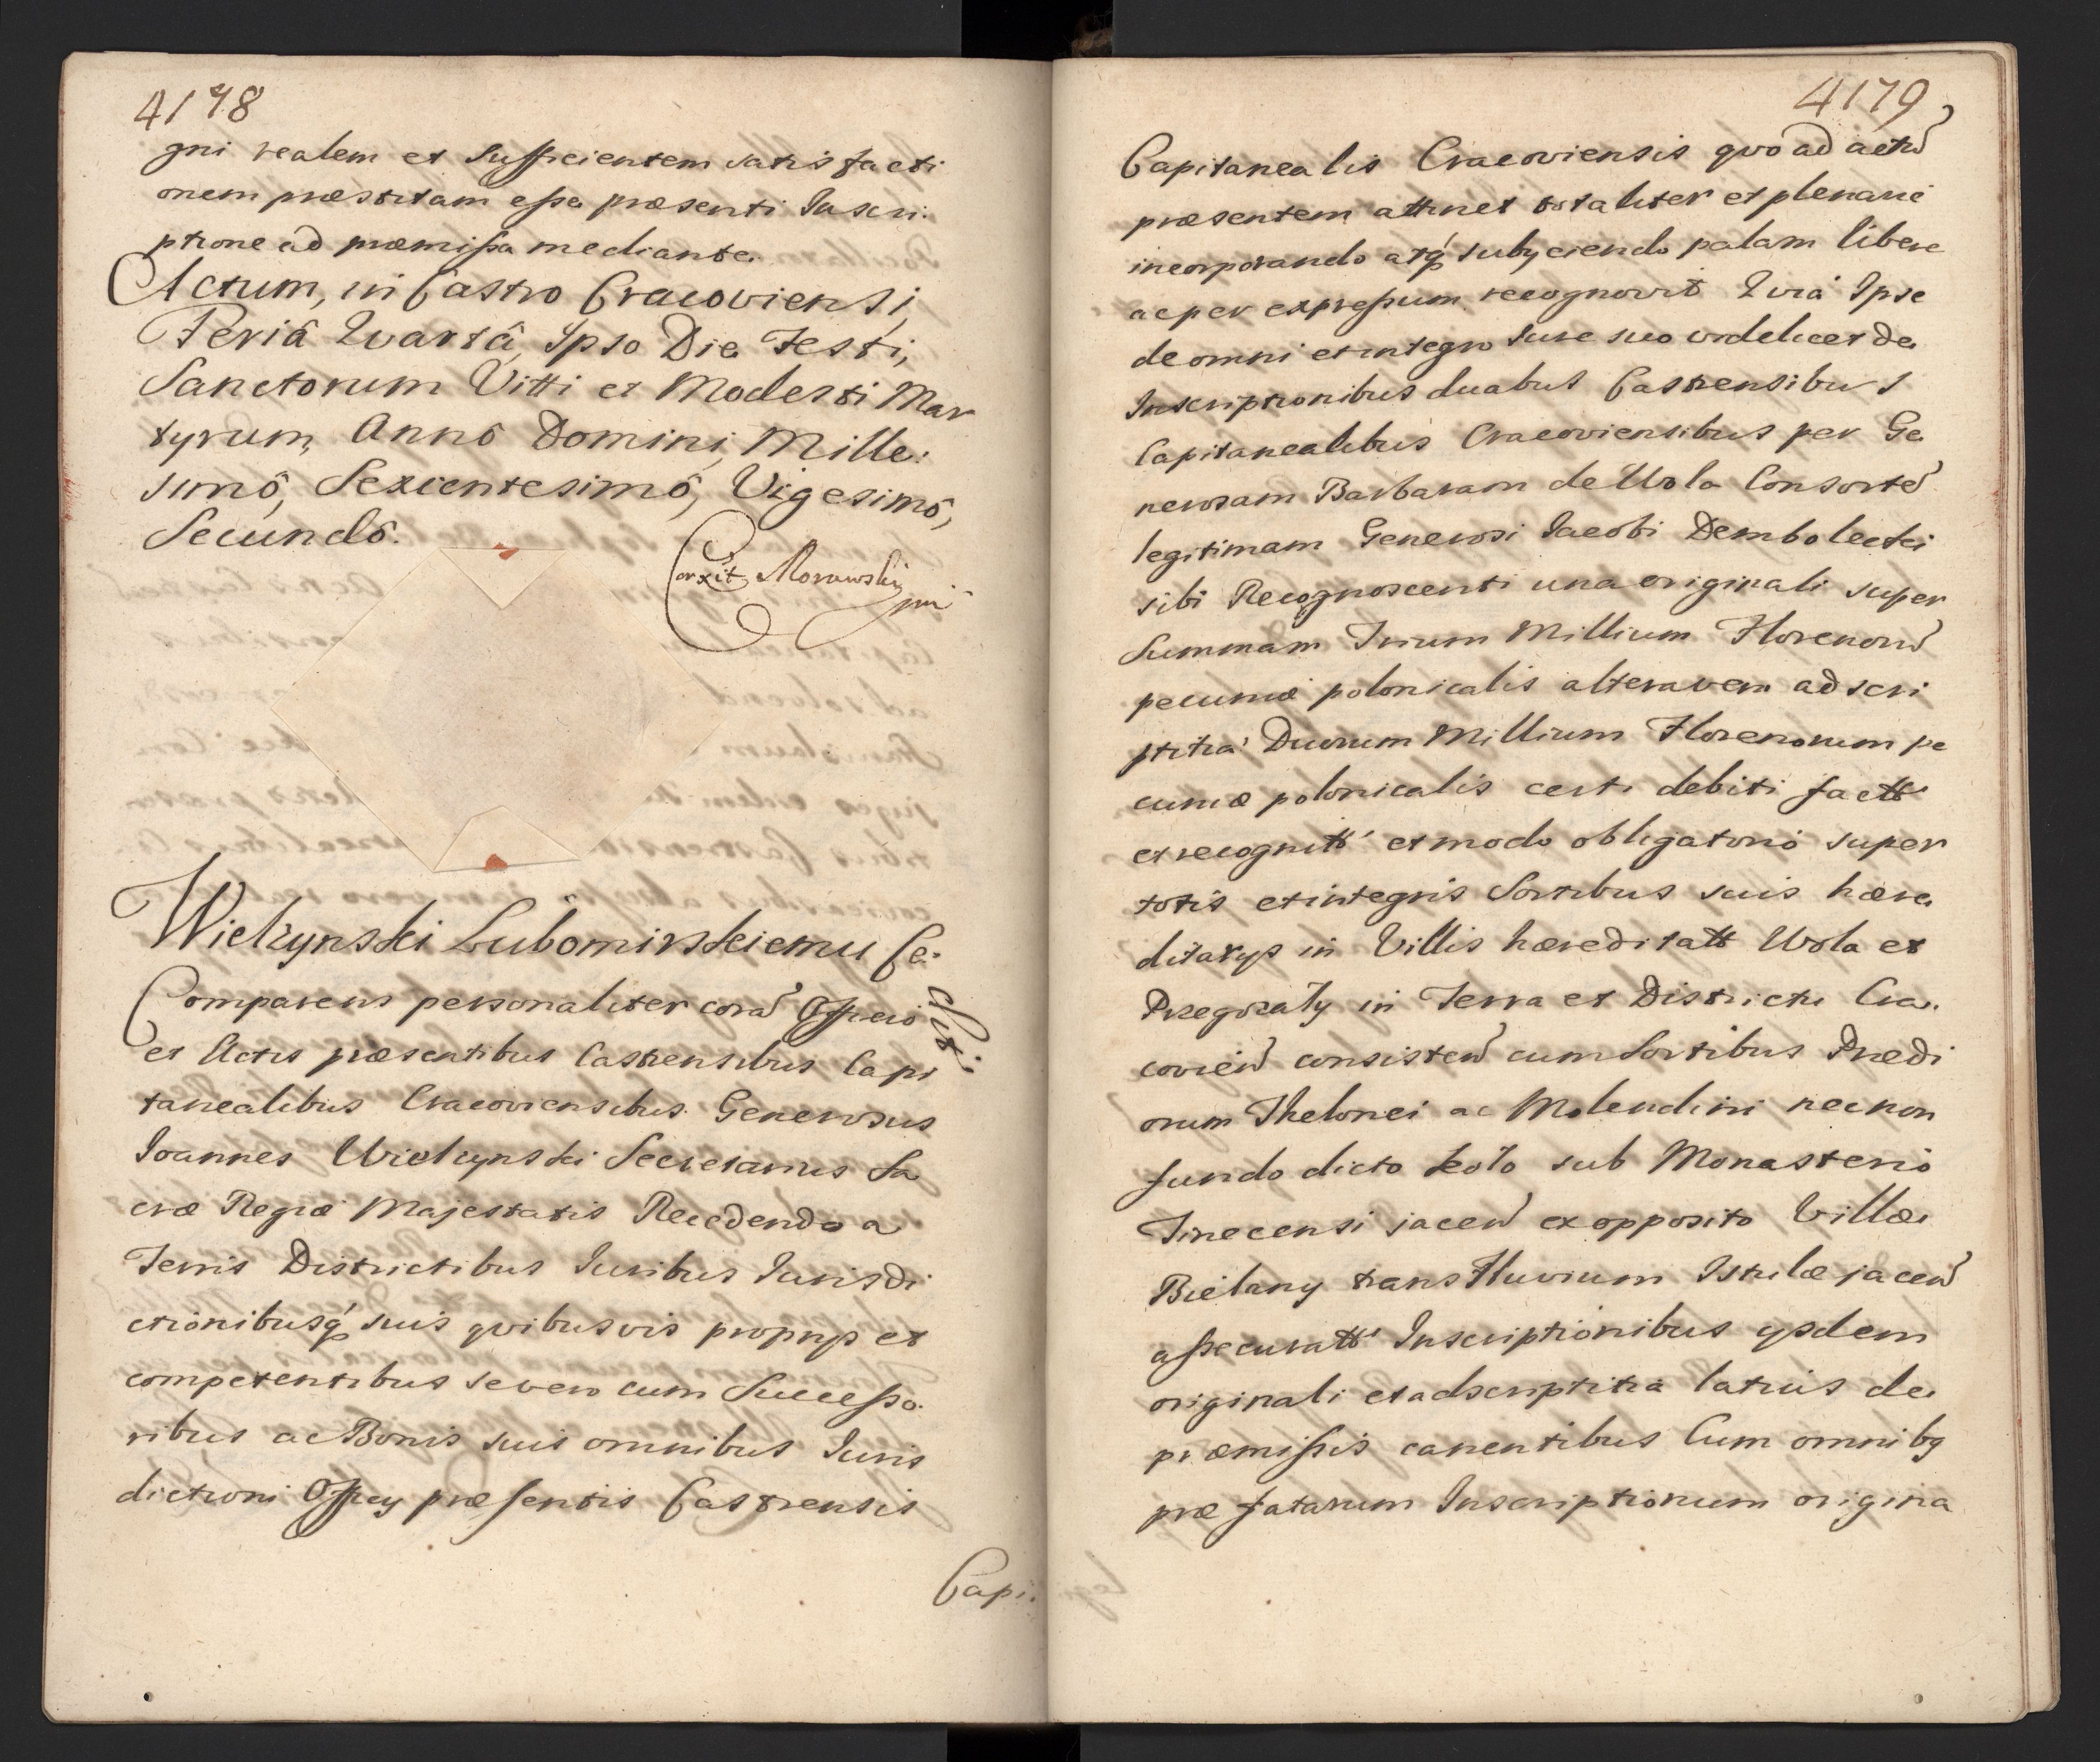 4178
gni realem et sufficientem satisfacti
onem præstitam esse præsenti Inscri:
ptione ad præmissa mediante.
Actum, in Castro Cracoviensi,
Feriâ Quartâ, Ipso Die Festi,
Sanctorum Vitti et Modesti Mar
tyrum, Annô Domini, Mille:
simô, Sexcentesimô, Vigesimô,
Secundô.
Corxit Morawski mp
Wielzynski Lubomirskiemu Ce:
ssit.
Comparens personaliter corã Officio
et Actis præsentibus Castrensibus Capi
tanealibus Cracoviensibus Generosus
Ioannes Wielzynski Secretarius Sa
cræ Regiæ Majestatis Recedendo a
Terris Districtibus Iuribus Iurisdi
ctionibusq́ suis qvibusvis proprijs et
competentibus severo cum Successo.
ribus ac Bonis suis omnibus Iuris
dictioni Officij præsentis Castrensis
Capi.
4179
Capitanealis Cracoviensis qvo ad actũ
præsentem attinet totaliter et plenarie
incorporando atq́ subijciendo palam libere
ac per expressum recognovit Qvia Ipse
de omni et integro Iure suo videlicet de
Inscriptionibus duabus Castrensibus
Capitanealibus Cracoviensibus per Ge
nerosam Barbaram de Wola Consortẽ
legitimam Generosi Iacobi Dembolecki
sibi Recognoscenti una originali super
Summam Trium Millium Florenorũ
pecuniæ polonicalis altera vero adscri
ptitia Duorum Millium Florenorum pe
cuniæ polonicalis certi debiti factt
et recognitt et modo obligatorio super
totis et integris Sortibus suis hære
ditarijs in Villis hæreditatt Wola et
Przegorzały in Terra et Districtu Cra.
coviẽn consistẽn cum Sortibus Prædi
orum Thelonei ac Molendini necnon
fundo dicto koło sub Monasterio
Tinecensi jacen̄ ex opposito Villæ
Bielany trans Fluvium Istulæ jacen̄
assecuratt Inscriptionibus ijsdem
originali et adscriptitia latius de
præmissis canentibus Cum omnibq
præfatarum Inscriptionum origina